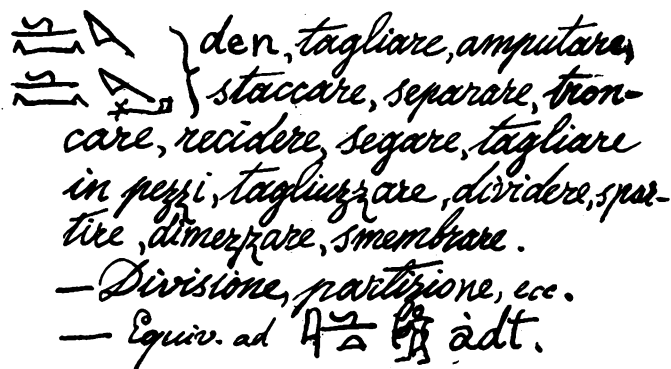 den, tagliare, amputare,
staccare, separare, tron-
care, recidere, segare, tagliare
in pezzi, tagliuzzare, dividere, spar-
tire, dimezzare, smembrare.
— Divisione, partizione, ecc.
— Equiv. ad àdt.